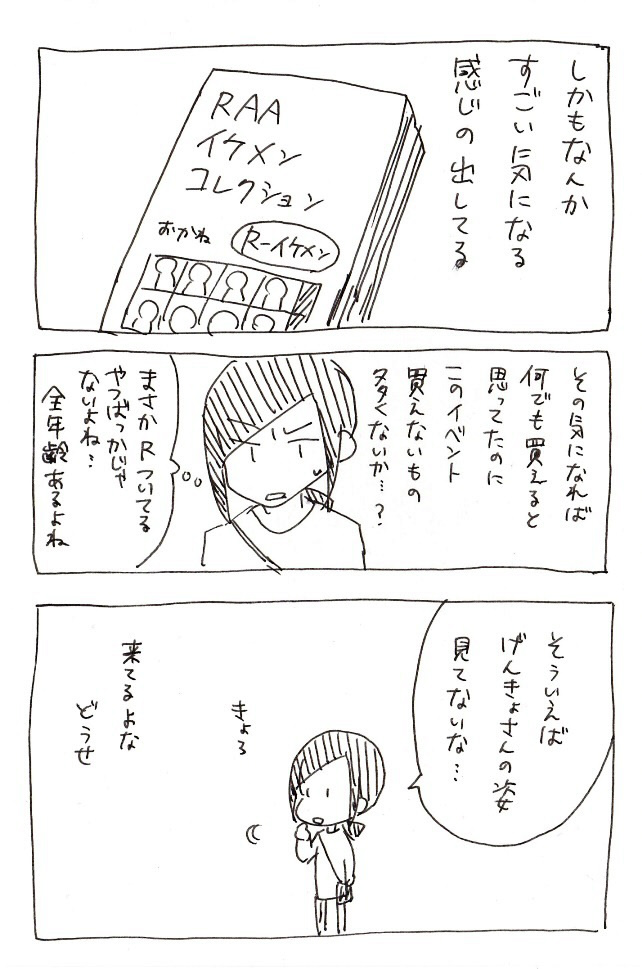 しかもなんか
すごい気になる
感じの出してる
RAA
イケメン
コレクション
おかね
R-イケメン
その気になれば
何でも買えると
思ってたのに
このイベント
買えないもの
多くないか…?
まさかRついてる
やつばっかじゃ
ないよね…
全年齢あるよね
そういえば
げんきょさんの姿
見てないな…
きょろ
来てるよな
どうせ